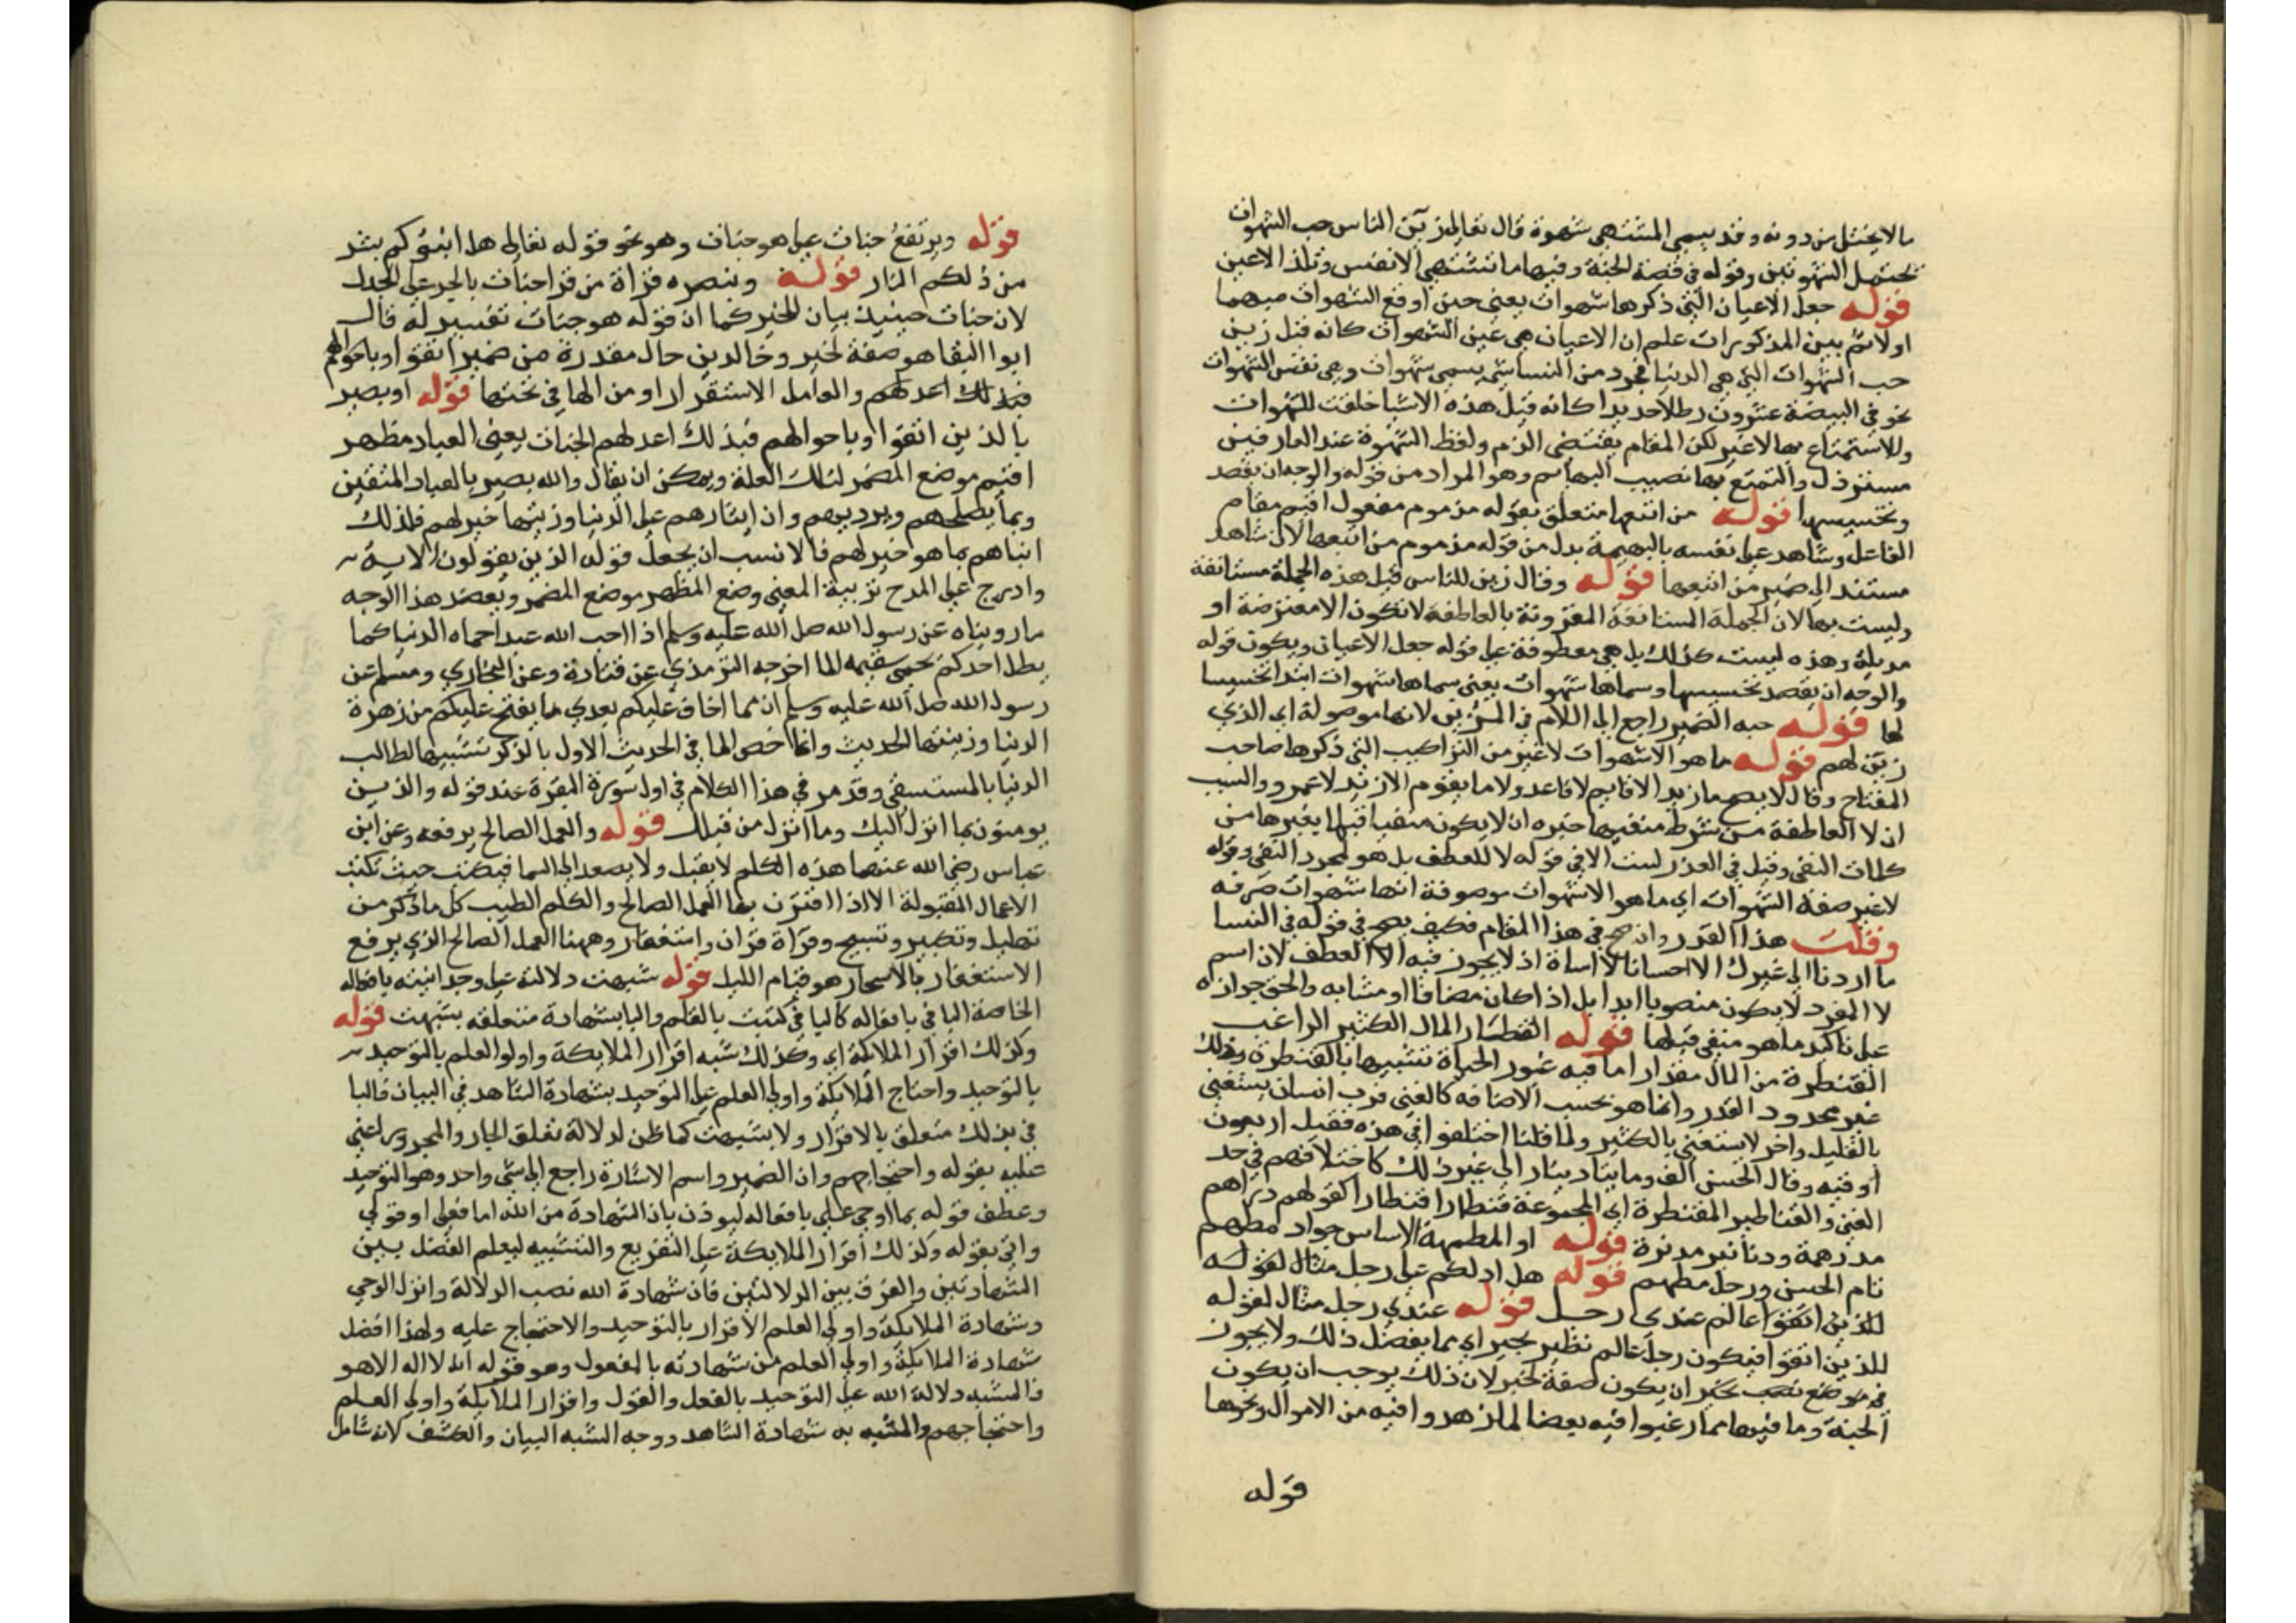 ما لا يختل من دونه وقد يسمى المشتهى شهوة قال تعالى زين للناس حب الشهوات
تحتمل الشهوتين وقوله في قصة الجنة وفيها ما تشتهي الانفس وتلذ الاعين
قوله جعل الاعيان التي ذكرها شهوات يعني حين اوقع الشهوات مبهما
اولا ثم بين المذكورات علم ان الاعيان هي عين الشهوات كانه قيل زين
حب الشهوات التي هي الدنيا فجرد من النسا شي يسمى شهوات وهي نفس الشهوات
نحو في البيضة عشرون رطلا حديدا كانه قيل هذه الاشيا خلقت للشهوات
وللاستمتاع بها لا غير لكن المقام يقتضي الذم ولفظ الشهوة عند العارفين
مسترذل والتمتع بها نصيب البهايم وهو المراد من قوله والوجه ان يقصد
وتخسيسها قوله من اتبعها متعلق بقوله مذموم مفعول اقيم مقام
الفاعل وشاهد على نفسه بالبهيمة بدل من قوله مذموم من اتبعها لان شاهد
مستند الى ضمير من اتبعها قوله وقال زين للناس قيل هذه الجملة مستانفة
وليست بها لان الجملة المستانفة المقرونة بالعاطفة لا تكون الا معترضة او
مذيلة وهذه ليست كذلك بل هي معطوفة على قوله جعل الاعيان ويكون قوله
والوجه ان يقصد تخسيسها وسماها شهوات يعني سماها شهوات ابتدا تخسيسا
لها قوله حبه الضمير راجع الى اللام في المزين لانها موصولة اي الذي
زين لهم قوله ما هو الا شهوات لا غير من التراكيب التي ذكرها صاحب
المفتاح وقال لا يصح ما زيد الا قايم لا قاعد ولا ما يقوم الا زيد لا عمرو والسبب
ان لا العاطفة من شرط منفيها خبره ان لا يكون منفيا قبلها بغيرها من
كلمات النفي وقيل في العذر ليست الا في قوله لا للعطف بل هو لمجرد النفي وقوله
لا غير صفة الشهوات اي ما هو الا شهوات موصوفة انها شهوات صرفه
وقلت هذا القدر وان صح في هذا المقام فكيف يصح في قوله في النسا
ما اردنا الى غيرك الا احسانا لا اساة اذ لا يجوز فيه الا العطف لان اسم
لا المفرد لا يكون منصوبا ابدا بل اذا كان مضافا او مشابه والحق جوازه
على تاكيد ما هو منفي قبلها قوله القنطار المال الكثير الراغب
القنطرة من المال مقدار اما فيه عبور الحياة تشبيها بالقنطرة وذلك
غير محدود القدر وانما هو بحسب الاضافه كالغني فرب انسان يستغني
بالقليل واخر لا يستغني بالكثير ولما قلنا اختلفوا في هذه فقيل اربعون
اوقيه وقال الحسن الف وماىتا دينار الى غير ذلك كاختلافهم في حد
الغني والقناطير المقنطرة اي المجموعة قنطارا قنطارا كقولهم دراهم
مدرهمة ودنانير مدنرة قوله او المطهمة الاساس جواد مطهم
تام الحسن ورجل مطهم قوله هل ادلكم على رجل مثال لقوله
للذين اتقوا عالم عندي رجل قوله عندي رجل مثال لقوله
للذين اتقوا فيكون رجل عالم نظير بخير اي بما يفضل ذلك ولا يجوز
في موضع نصب بخير ان يكون صفة لخير لان ذلك يوجب ان يكون
الجنة وما فيها مما رغبوا فيه بعضا لما زهدوا فيه من الاموال ونحوها
قوله
قوله ويرتفع جنات على هو جنات وهو نحو قوله تعالى هل انبئوكم بشر
من ذلكم النار قوله وينصره قراة من قرا جنات بالجر على البدل
لان جنات حينيذ بيان للخير كما ان قوله هو جنات تفسير له قال
ابوا البقا هو صفة لخير وخالدين حال مقدرة من ضمير اتقوا وباحوالهم
فبذلك اعد لهم والعامل الاستقرار او من الها في تحتها قوله او بصير
بالذين اتقوا وباحوالهم فبذلك اعد لهم الجنات يعني العباد مظهر
اقيم موضع المضمر لتلك العلة ويمكن ان يقال والله بصير بالعباد المتقين
وبما يصلحهم ويرديهم وان ايثارهم على الدنيا وزينتها خير لهم فلذلك
انباهم بما هو خير لهم فالانسب ان يجعل قوله الذين يقولون الاية
وادرج على المدح تربية المعنى وضع المظهر موضع المضمر ويعضد هذا الوجه
ما رويناه عن رسول الله صلى الله عليه وسلم اذا احب الله عبدا حماه الدنيا كما
يظل احدكم يحمي سقيمه الما اخرجه الترمذي عن قتادة وعن البخاري ومسلم عن
رسول الله صلى الله عليه وسلم ان مما اخاف عليكم بعدي ما يفتح عليكم من زهرة
الدنيا وزينتها الحديث وانما خص الما في الحديث الاول بالذكر تشبيها لطالب
الدنيا بالمستسقي وقد مر في هذا الكلام في اول سورة البقرة عند قوله والذين
يومنون بما انزل اليك وما انزل من قبلك قوله والعمل الصالح يرفعه وعن ابن
عباس رضي الله عنهما هذه الكلم لا يقبل ولا يصعد الى السما فيكتب حيث تكتب
الاعمال المقبولة الا اذا اقترن بها العمل الصالح والكلم الطيب كل ما ذكر من
تهليل وتكبير وتسبيح وقراة قران واستغفار وههنا العمل الصالح الذي يرفع
الاستغفار بالاسحار هو قيام الليل قوله شبهت دلالته على وحدانيته بافعاله
الخاصة البا في بافعاله كالبا في كتبت بالقلم والبا بشهادة متعلقه بشبهت قوله
وكذلك اقرار الملائكة اي وكذلك شبه اقرار الملايكة واولوا العلم بالتوحيد
بالتوحيد واحتاج الملايكة واولي العلم على التوحيد بشهادة الشاهد في البيان فالبا
في بذلك متعلق بالاقرار ولا بشبهت كما ظن لدلالة تعلق الجار والمجرور اعني
عليه بقوله واحتجاجهم وان الضمير واسم الاشارة راجع الى شي واحد وهو التوحيد
وعطف قوله بما اوحي على بافعاله ليوذن بان الشهادة من الله اما فعلي او قولي
واتى بقوله وكذلك اقرار الملايكة على التفريع والتشبيه ليعلم الفصل بين
الشهادتين والفرق بين الدلالتين فان شهادة الله نصب الدلالة وانزل الوحي
وشهادة الملايكة واولي العلم الاقرار بالتوحيد والاحتجاج عليه ولهذا افضل
شهادة الملايكة واولي العلم من شهادته بالمفعول وهو قوله انه لا اله الا هو
فالمشبه دلالة الله على التوحيد بالفعل والقول واقرار الملايكة واولي العلم
واحتجاجهم والمشبه به شهادة الشاهد ووجه الشبه البيان والكشف لانه شامل